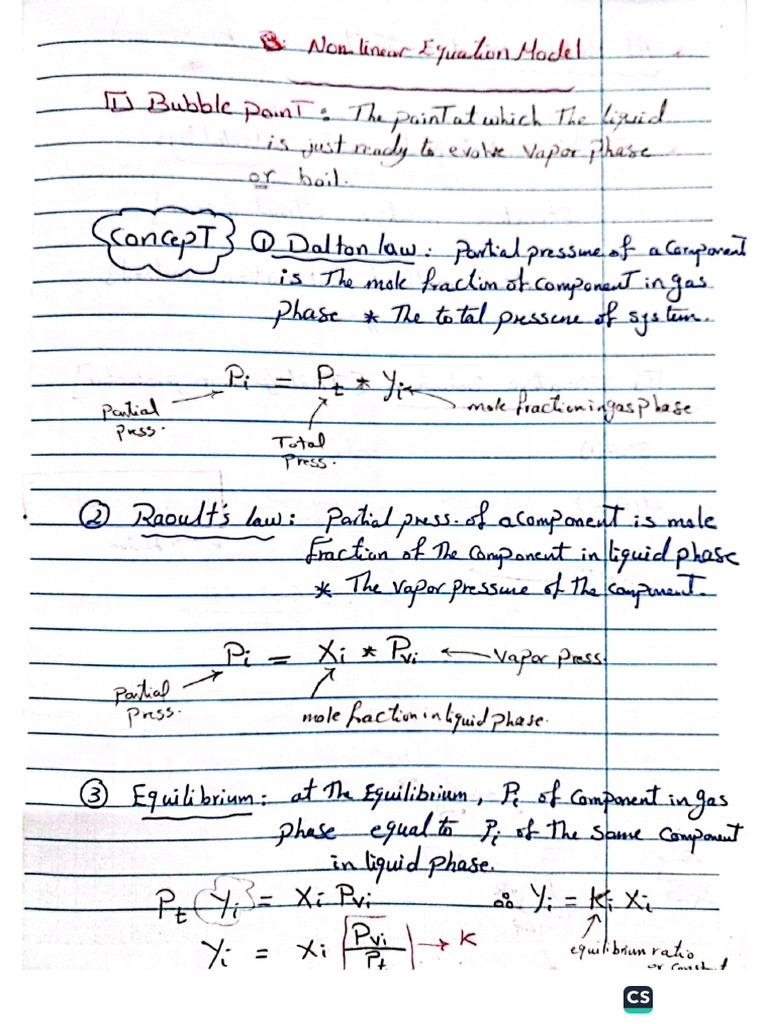 B. Non linear Equation Model
1 Bubble point : The point at which The liquid
is just ready to evolve vapor phase
or boil.
Concept ① Dalton law : Partial pressure of a component
is The mole fraction of component in gas
phase * The total pressure of system.
Pi = Pt * yi
Partial
Press.
Total
Press.
mole fraction in gas phase
② Raoult's law : Partial press. of a component is mole
fraction of The component in liquid phase
* The vapor pressure of the component.
Pi = Xi * Pvi ← Vapor press.
Partial
Press.
mole fraction in liquid phase.
③ Equilibrium : at The Equilibrium, Pi of component in gas
phase equal to Pi of The same component
in liquid phase.
Pt yi = Xi Pvi ∴ Yi = Ki Xi
Yi = Xi Pvi/Pt → K
equilibrium ratio
or constant
CS